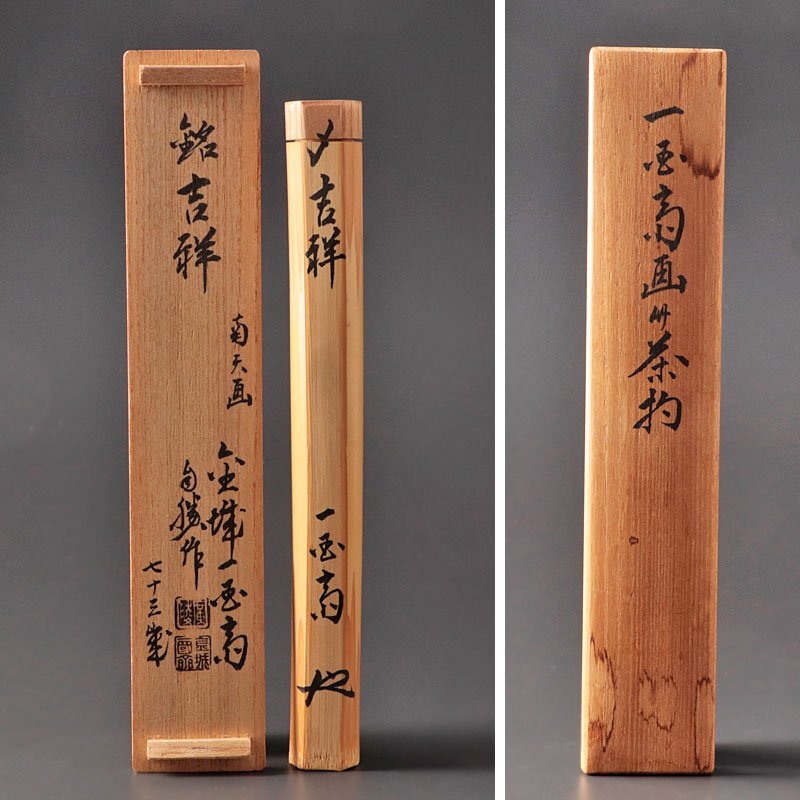 銘吉祥
南天画
金城一国斎
自勝作
七十三歳
〆吉祥
一国斎
一国斎画竹茶杓